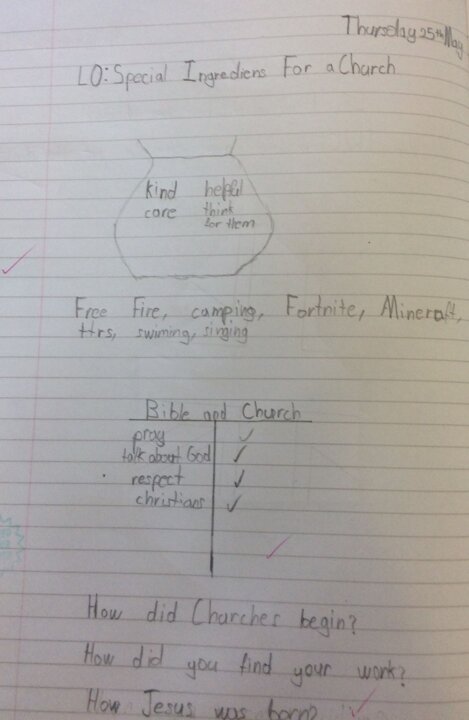 Thursday 25th May
LO: Special Ingrediens For a Church
kind helpful
care think
for them
Free Fire, camping, Fortnite, Minecraft,
swiming, singing
Bible and Church
pray ✓
talk about God ✓
respect ✓
christians ✓
How did Churches begin?
How did you find your work?
How Jesus was born?